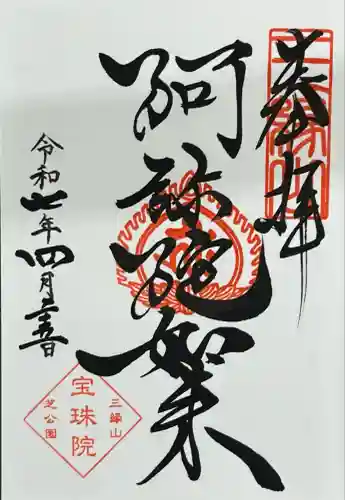 奉拝
阿弥陀如来
令和七年四月十五日
三縁山
宝珠院
芝公園